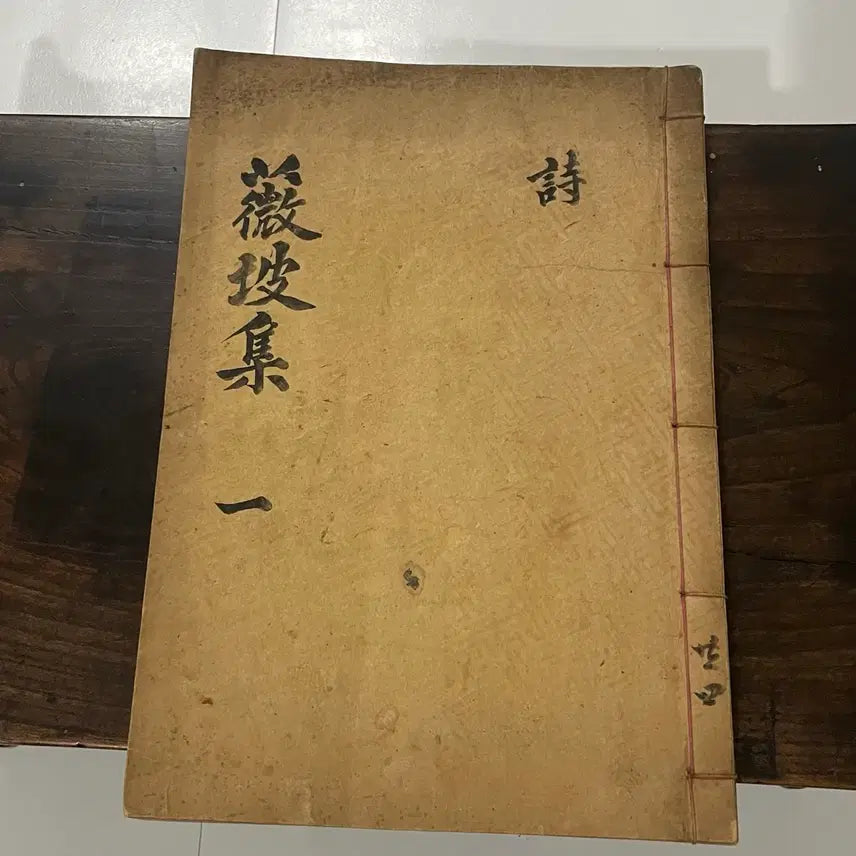 共四
詩
薇坡集 一